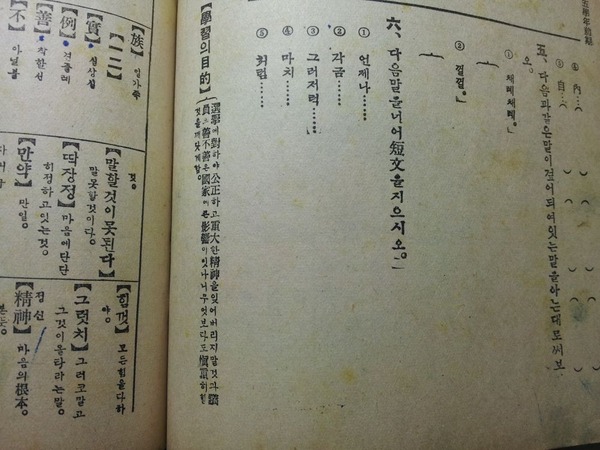 五學年前期
④ 內…(　)
③ 自…(　)
五、다음과같은말이겹어되여잇는말을아는대로써보
오。
① 체례체례。
② 껄껄。
六、다음말을너어短文을지으시오。
① 언제나……
② 각금……
③ 그러저럭……
④ 마치……
⑤ 처럼……
【學習의目的】
選擧에對하야公正하고重大한精神을잊어버리지말것과議
員의善不善은國家에큰影響이잇나니무엇보다도愼重히할
것을깨닷게함。
【族】 일가족
【一二】
【實】 실상실
【例】 견줄례
【善】 착한선
【不】 아닐불
것。
【말할것이못된다】
말못할것이다。
【딱장정】 마음에단단
히정하고잇는것。
【만약】 만일。
【힘껏】 모든힘을다하
야。
【그럿치】 그러코말고
그것이올타라는말。
【精神】 마음의根本。
정신